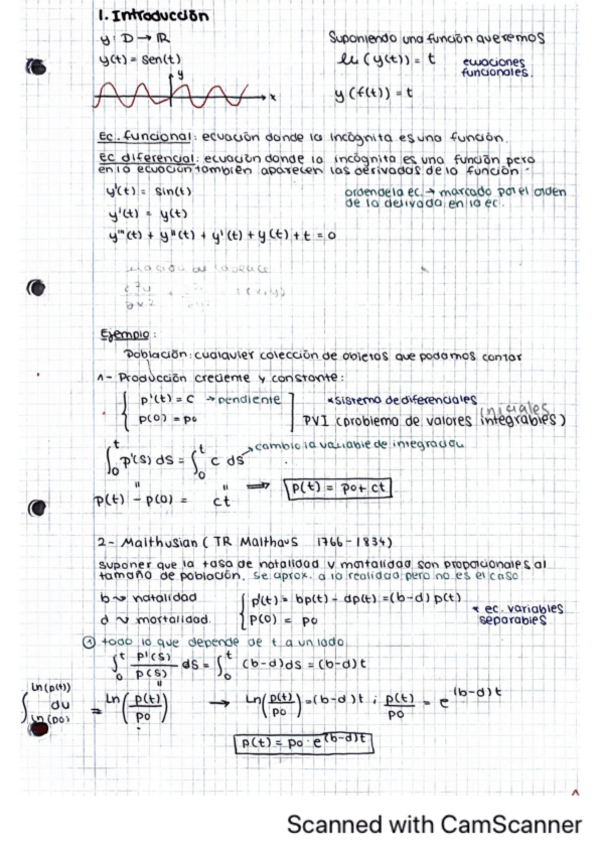 1. Introducción
y: D → ℝ
y(t) = sen(t)
y
x
Suponiendo una función queremos
ln(y(t)) = t
ecuaciones
funcionales.
y(f(t)) = t
Ec. funcional: ecuación donde la incógnita es una función.
Ec diferencial: ecuación donde la incógnita es una función pero
en la ecuación también aparecen las derivadas de la función.
y'(t) = sin(t)
y'(t) = y(t)
y'''(t) + y''(t) + y'(t) + y(t) + t = 0
orden de la ec. → marcado por el orden
de la derivada en la ec.
Ejemplo:
Población: cualquier colección de objetos que podamos contar
1- Producción creciente y constante:
p'(t) = c → pendiente
p(0) = p0
* sistema de diferenciales
iniciales
PVI (problema de valores integrables)
∫₀ᵗ p'(s) ds = ∫₀ᵗ c ds → cambio la variable de integración
p(t) - p(0) = ct ⇒ p(t) = p0 + ct
2- Malthusian (TR Malthaus 1766-1834)
suponer que la tasa de natalidad y mortalidad son proporcionales al
tamaño de población. Se aprox. a la realidad pero no es el caso
b ~ natalidad
d ~ mortalidad.
p'(t) = bp(t) - dp(t) = (b-d) p(t)
p(0) = p0
* ec. variables
separables
① todo lo que depende de t a un lado
∫₀ᵗ p'(s)/p(s) ds = ∫₀ᵗ (b-d)ds = (b-d)t
∫ Ln(p(t)) Ln(p0) du = Ln(p(t)/p0) → Ln(p(t)/p0) = (b-d)t ; p(t)/p0 = e^(b-d)t
p(t) = p0 · e^(b-d)t
Scanned with CamScanner